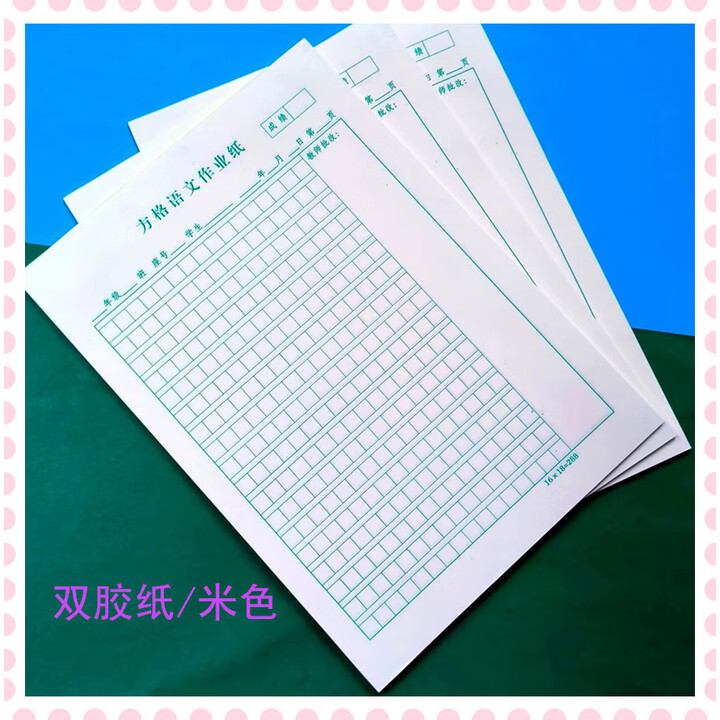 成绩
方格语文作业纸
___年级___班 座号___学生______ ___年___月___日第___页
教师批改:
16×18=288
绩
第___页
教师批改:
绩
第___页
师批改:
双胶纸/米色